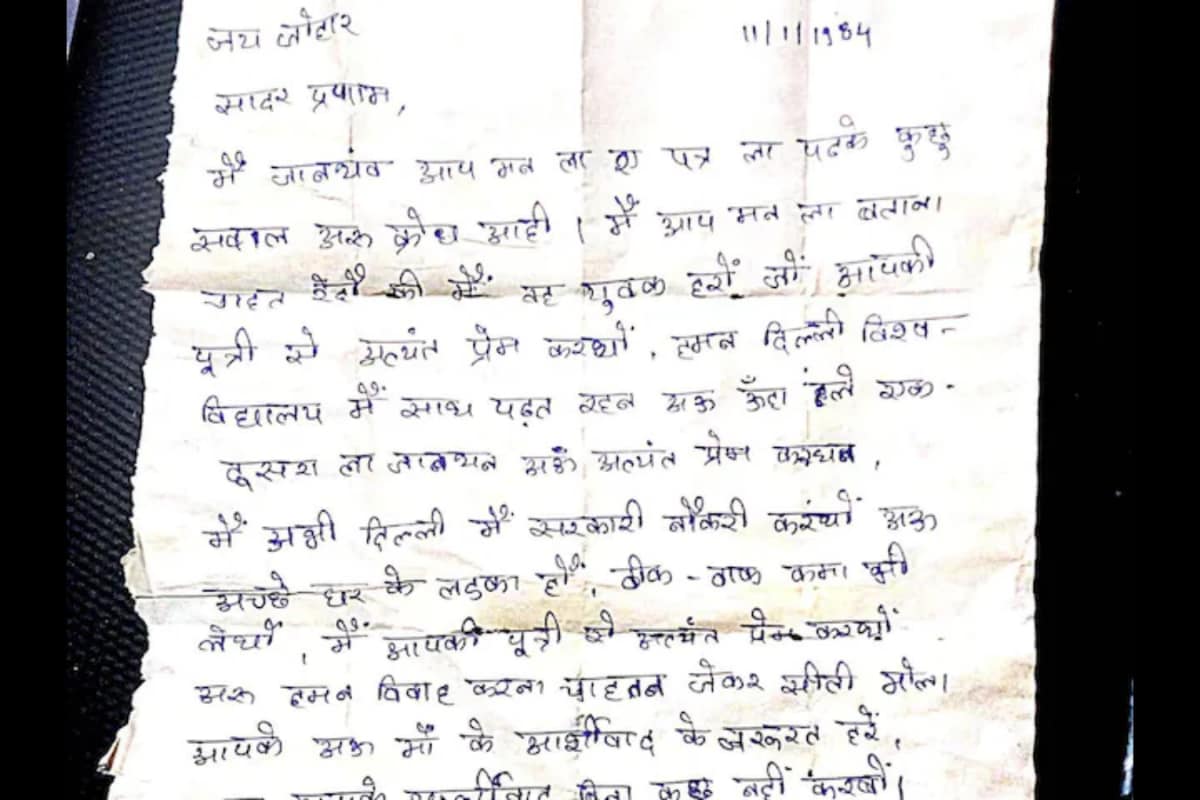 जय जोहार
11/1/1984
सादर प्रणाम,
मैं जानथंव आप मन ला ए पत्र ला पढके कुछु
सवाल अरू क्रोध आही । मैं आप मन ला बताना
चाहत हौं की मैं वह युवक हरों जों आपकी
पूत्री से अत्यंत प्रेम करथों, हमन दिल्ली विश्व-
विद्यालय मैं साथ पढ़त रहन अऊ ऊँहा ले एक-
दुसरा ला जानथन अऊ अत्यंत प्रेम करथन,
मैं अभी दिल्ली मैं सरकारी नौकरी करंथों अऊ
अच्छे घर के लडका हों, ठीक-ठाक कमा भी
लेथों, मैं आपकी पूत्री से अत्यंत प्रेम करथों
अरू हमन विवाह करना चाहतन जेकर सीती मोला
आपके अऊ माँ के आर्शीवाद के जरूरत हरे,
आपके आर्शीवाद बिना कछु नहीं करंवों।